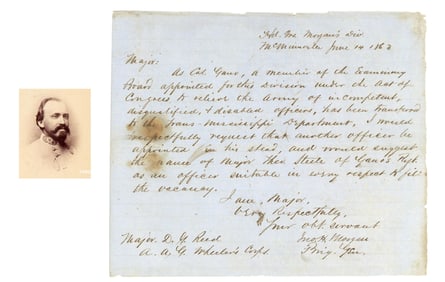 Hd. Qrs. Morgan's Div.
McMinnville June 14 1863
Major:
As Col Gano, a member of the Examining
Board appointed for this Division under the Act of
Congress to relieve the Army of incompetent,
disqualified, & disabled officers, has been transferred
to the Trans-Mississippi Department, I would
respectfully request that another officer be
appointed in his stead, and would suggest
the name of Major Theo Steele of Gano's Regt
as an officer suitable in every respect to fill
the vacancy.
I am, Major,
Very Respectfully,
Your obt. servant
Jno. H. Morgan
Brig. Gen.
Major D. G. Reed
A. A. G. Wheeler's Corps.